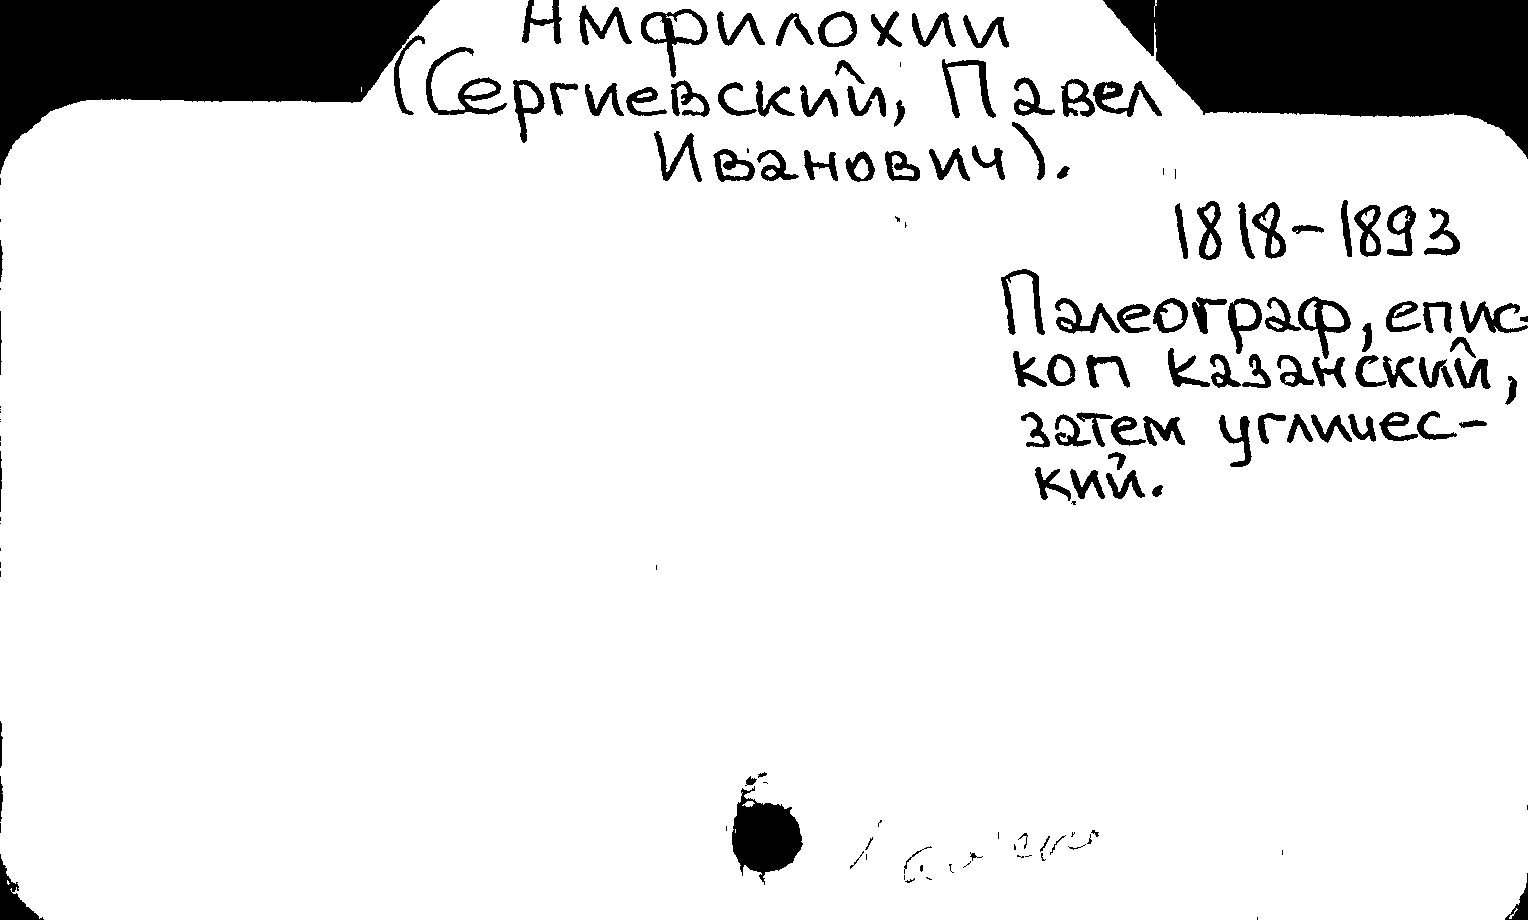 Амфилохий
(Сергиевский, Павел
Иванович).
1818-1893
Палеограф, епис-
коп казанский,
затем угличес-
кий.